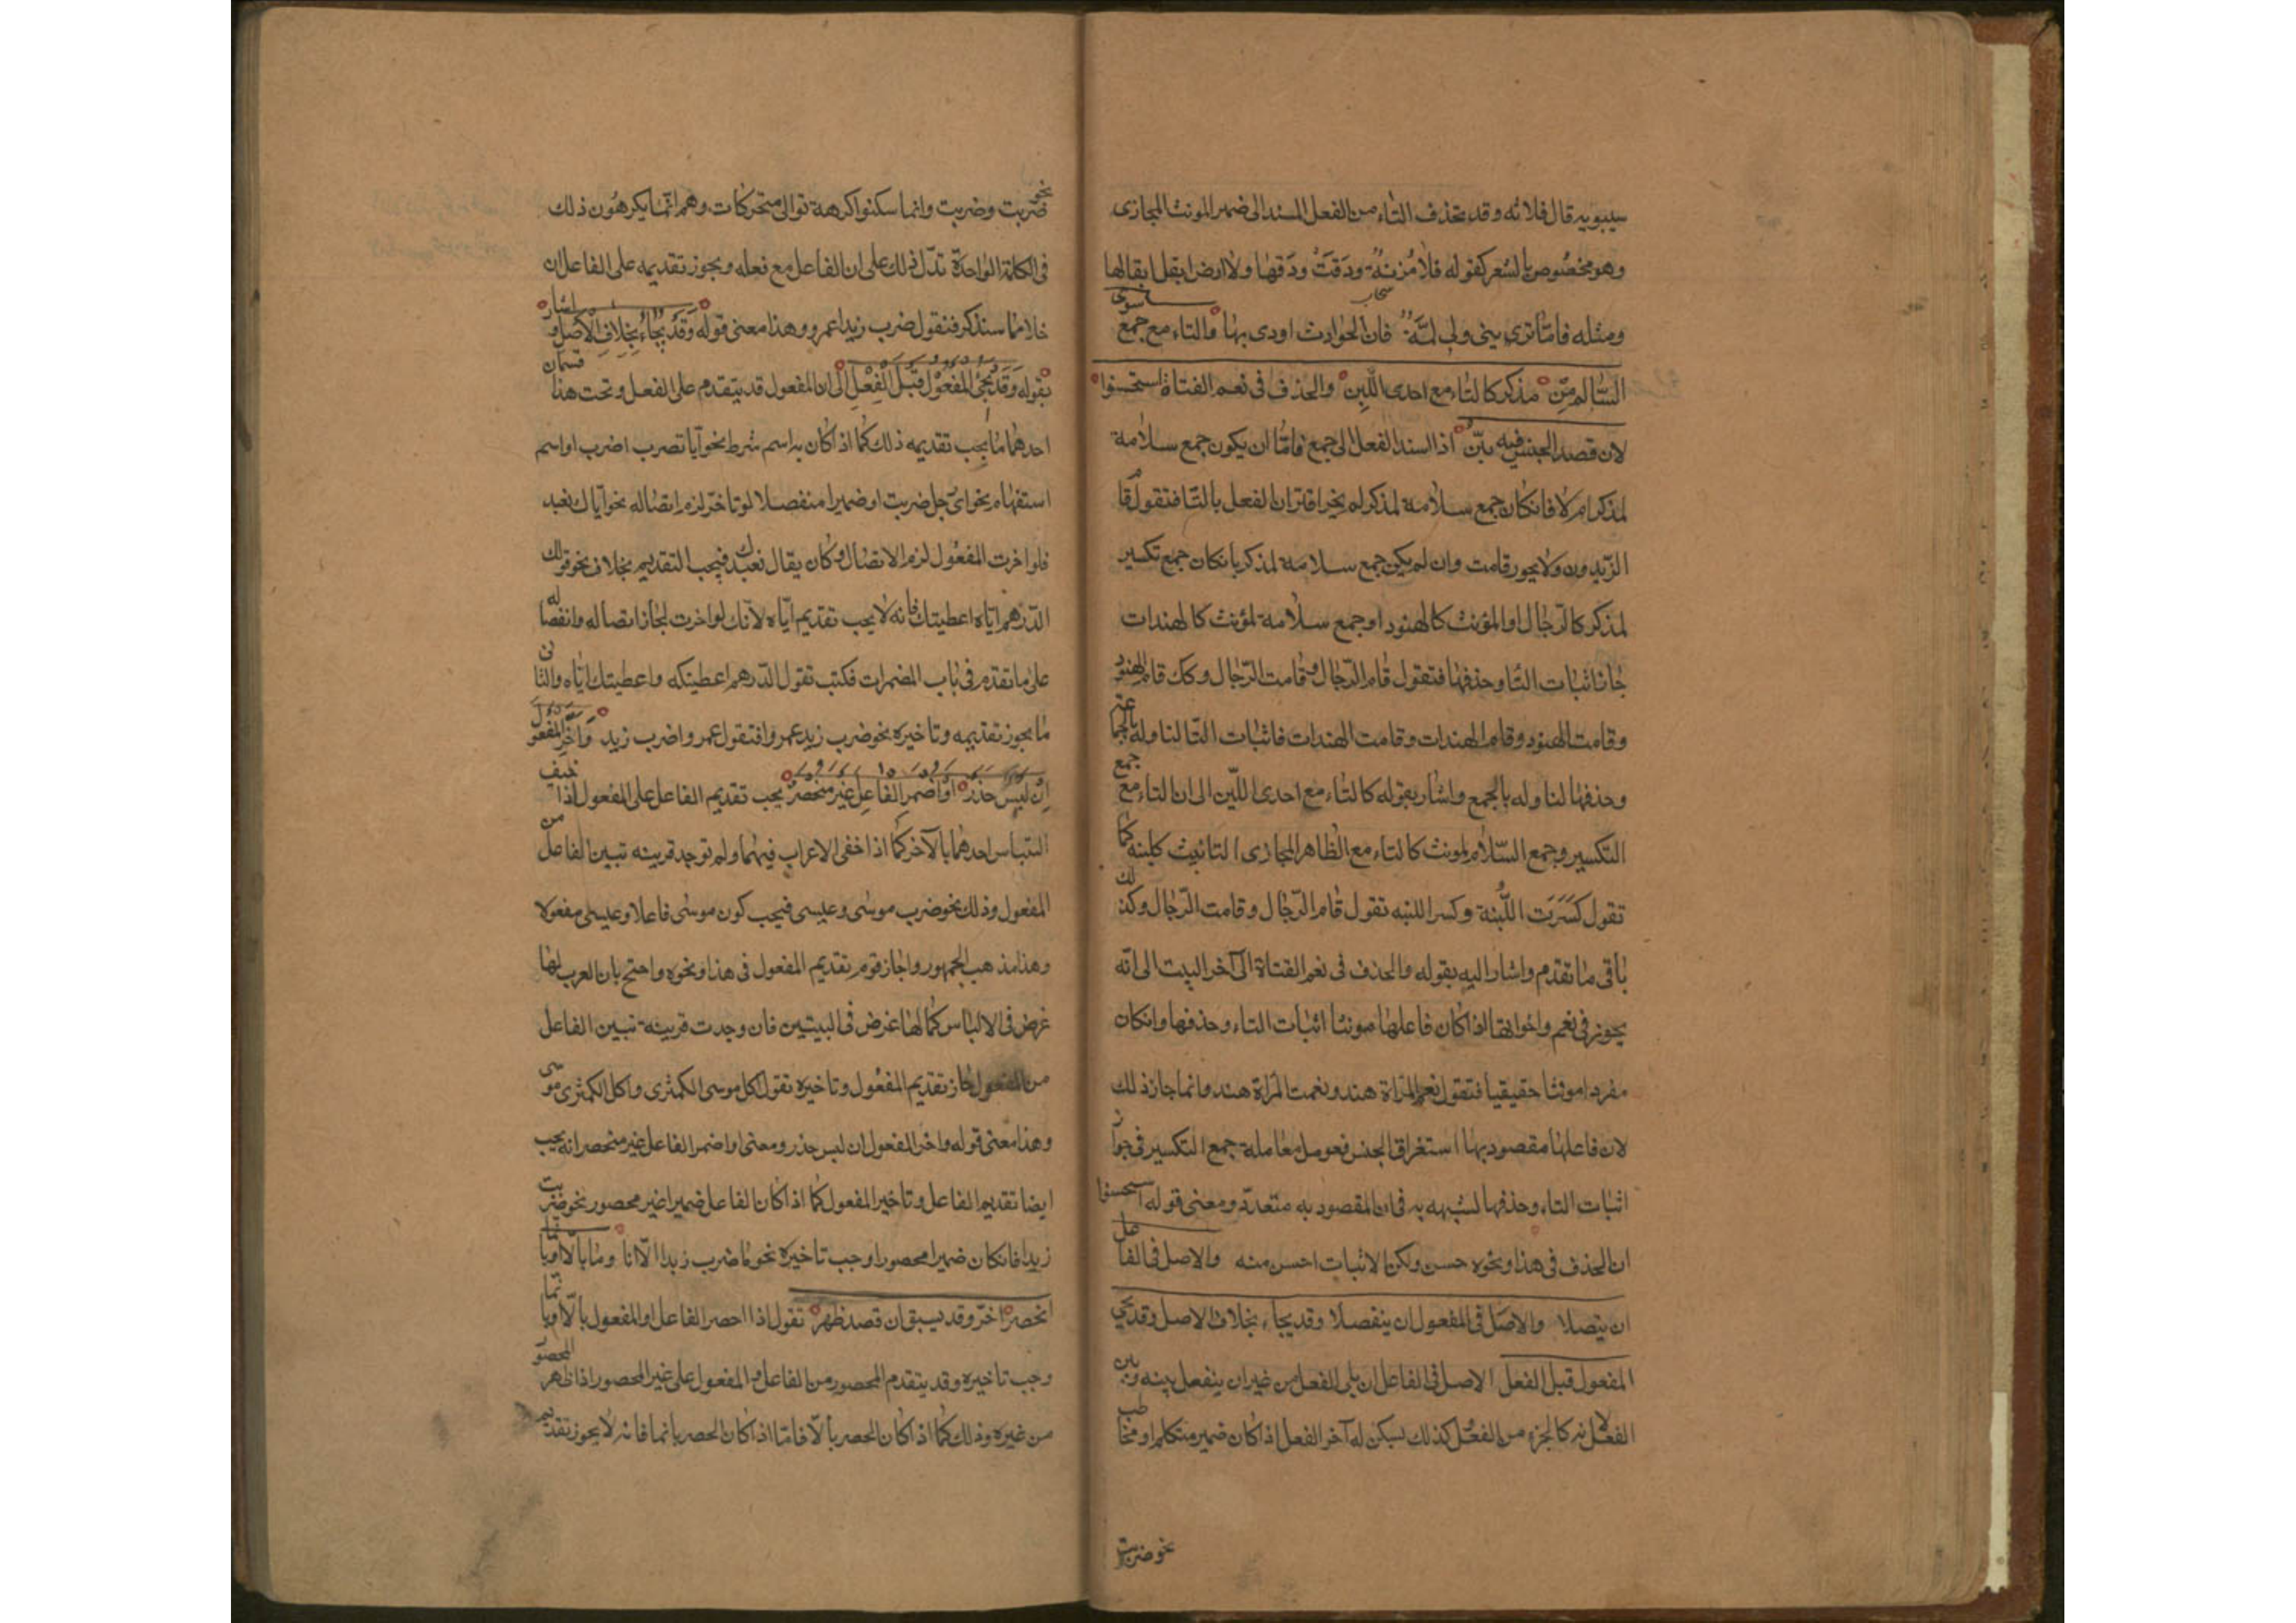 سيبويه قال فلانه وقد تحذف التاء من الفعل المسند الى ضمير المونث المجازى
وهو مخصوص بالشعر كقوله فلا مُزنةٌ ودَقَتْ ودَقها ولا ارض ابقل ابقالها
سحاب
ومثله فامّا ترى بينى ولى لمَّةٌ فان الحوادث اودى بها والتاء مع جمع سوى
السّالم من مذكر كالتاء مع احدى اللّبن والحذف فى نعم الفتاة استحسنوا
لان قصد الجنس فيه بيّن اذا اسند الفعل الى جمع فامّا ان يكون جمع سلامة
لمذكر ام لا فان كان جمع سلامة لمذكر لم يخبر اقتران الفعل بالتا فتقول قام
الزّيدون ولا يجوز قامت وان لم يكن جمع سلامة لمذكر بان كان جمع تكسير
لمذكر كالرّجال او المؤنث كالهنود او جمع سلامة لمؤنث كالهندات
جاز اثبات التا وحذفها فتقول قام الرّجال وقامت الرّجال وكك قام الهنود
وقامت الهنود وقام الهندات وقامت الهندات فاثبات التا لتاوله بالجماعة
وحذفها لتاوله بالجمع واشار بقوله كالتاء مع احدى اللّبن الى ان التاء مع جمع
التكسير وجمع السّلام لمونث كالتاء مع الظاهر المجازى التانيث كلبنه كما
تقول كسَرَت اللَّبِنة وكسر اللبنه تقول قام الرّجال وقامت الرّجال وكذلك
باقى ما تقدم واشار اليه بقوله والحذف فى نعم الفتاة الى آخر البيت الى انّه
يجوز فى نعم واخواتها اذا كان فاعلها مونثا اثبات التاء وحذفها وان كان
مفردا مونثا حقيقيا فتقول نعم المراة هند ونعمت المراة هند وانما جاز ذلك
لان فاعلها مقصود بها استغراق الجنس فعومل معاملة جمع التكسير فى جواز
اثبات التاء وحذفها لشبهه به فى ان المقصود به متعدّد ومعنى قوله استحسنوا
ان الحذف فى هذا ونحوه حسن ولكن الاثبات احسن منه والاصل فى الفاعل
ان يتصلا والاصل فى المفعول ان ينفصلا وقد يجاء بخلاف الاصل وقد يجي
المفعول قبل الفعل الاصل فى الفاعل ان يلى الفعل من غير ان ينفصل بينه وبين
الفعل لانه كالجزء من الفعل كذلك يسكن له آخر الفعل اذا كان ضمير متكلم او مخاطب
نحو ضربت
نحو
ضربت وضربت وانما سكنوا كرهة توالى متحركات وهم انّما يكرهون ذلك
فى الكلمة الواحدة تدّل ذلك على ان الفاعل مع فعله ويجوز تقديمه على الفاعل ان
خلا مما سنذكر فتقول ضرب زيدا عمرو وهذا معنى قوله وَقَدْ يُجَاءُ بِخِلافِ الأَصْلِ واشار
بقوله وَقَدْ يَجِئُ المفعُولُ قَبْلَ الفِعْلِ الى ان المفعول قد يتقدم على الفعل وتحت هذا قسمان
احدهما ما يجب تقديمه ذلك كما اذا كان به اسم شرط نحو ايّا تضرب اضرب او اسم
استفهام نحو اىّ رجل ضربت او ضميرا منفصلا لو تاخر لزم اتصاله نحو ايّاك نعبد
فلو اخرت المفعول لزم الاتصال وكان يقال نعبدك فيجب التقديم بخلاف نحو قولك
الدّرهم ايّاه اعطيتك فانه لا يجب تقديم ايّاه لانّك لو اخرت لجاز اتصاله وانفصاله
على ما تقدم فى باب المضمرات فكتب تقول الدّرهم اعطيتكه واعطيتك ايّاه والثانى
ما يجوز تقديمه وتاخيره نحو ضرب زيد عمروا فتقول عمروا ضرب زيد وَأَخِّرِ المَفعُولَ
إِنْ لَبْسٌ حُذِرْ أَوْ أُضْمِرَ الفَاعِلُ غَيْرَ مُنْحَصِرْ يجب تقديم الفاعل على المفعول اذا خيف
التباس احدهما بالآخر كما اذا خفى الاعراب فيهما ولم توجد قرينه تبين الفاعل من
المفعول وذلك نحو ضرب موسى وعيسى فيجب كون موسى فاعلا وعيسى مفعولا
وهذا مذهب الجمهور واجاز قوم تقديم المفعول فى هذا ونحوه واحتج بان العرب لها
غرض فى الالباس كما لها غرض فى البيتين فان وجدت قرينة تبين الفاعل
من المفعول جاز تقديم المفعول وتاخيره تقول اكل موسى الكمثرى واكل الكمثرى موسى
وهذا معنى قوله واخر المفعول ان لبس حذر ومعنى او اضمر الفاعل غير منحصر انه يجب
ايضا تقديم الفاعل وتاخير المفعول كما اذا كان الفاعل ضميرا غير محصور نحو ضربت
زيدا فان كان ضميرا محصورا وجب تاخيره نحو ما ضرب زيدا الّا انا وما بالّا او بانّما
انحصر اخّر وقد يسبق ان قصد ظهر تقول اذا احصر الفاعل او المفعول بالّا او بانّما
وجب تاخيره وقد يتقدم المحصور من الفاعل والمفعول على غير المحصور اذا ظهر المحصور
من غيره وذلك كما اذا كان الحصر بالّا فامّا اذا كان الحصر بانما فانه لا يجوز تقديم